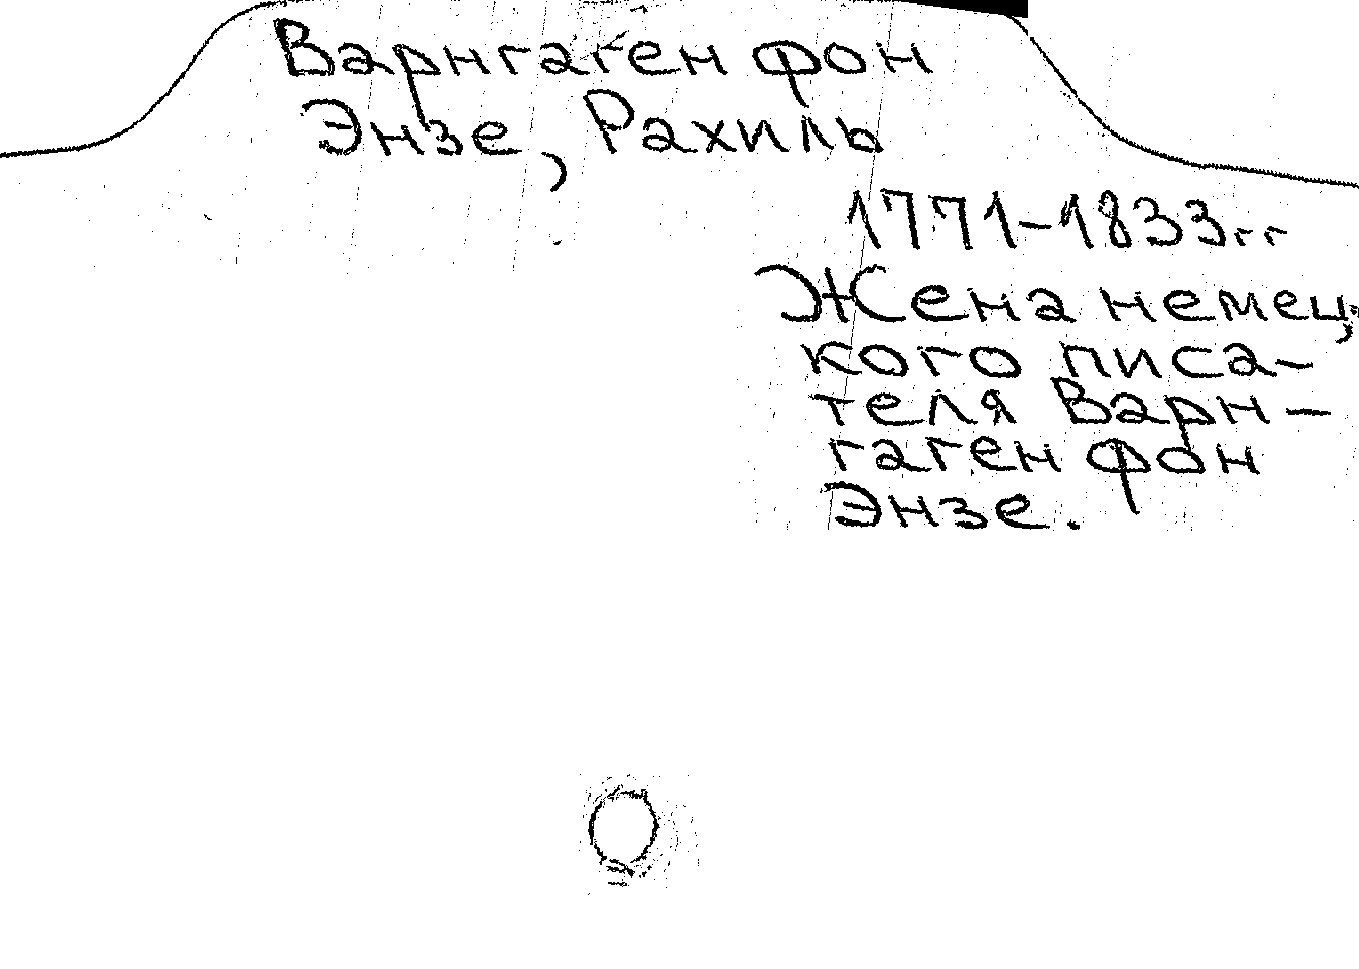 Варнгаген фон
Энзе, Рахиль
1771-1833гг
Жена немец,
кого писа-
теля Варн-
гаген фон
Энзе.